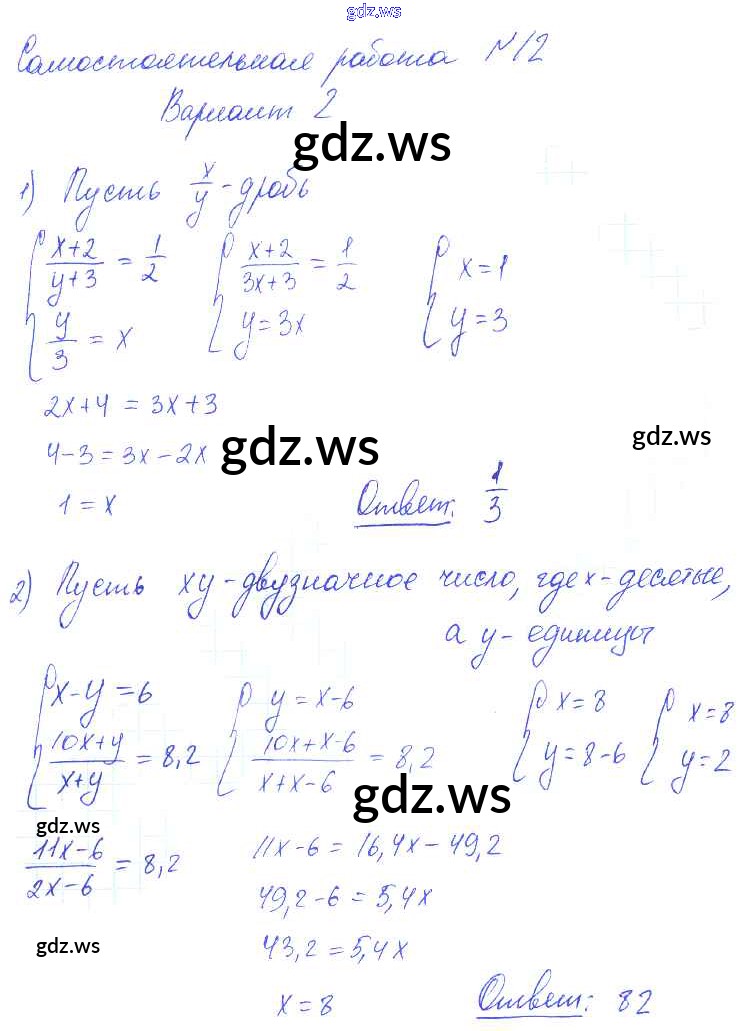 gdz.ws
Самостоятельная работа №12
Вариант 2
gdz.ws
1) Пусть x/y - дробь
{ (x+2)/(y+3) = 1/2   { (x+2)/(3x+3) = 1/2   { x=1
y/3 = x   y=3x   y=3
2x+4 = 3x+3
4-3=3x-2x gdz.ws gdz.ws
1=x   Ответ: 1/3
2) Пусть xy-двузначное число, где x-десятые,
а y-единицы
{ x-y=6   { y=x-6   { x=8   { x=8
(10x+y)/(x+y) = 8,2   (10x+x-6)/(x+x-6) = 8,2   y=8-6   y=2
gdz.ws gdz.ws
(11x-6)/(2x-6) = 8,2   11x-6=16,4x-49,2
49,2-6=5,4x
gdz.ws 43,2=5,4x
x=8   Ответ: 82
gdz.ws